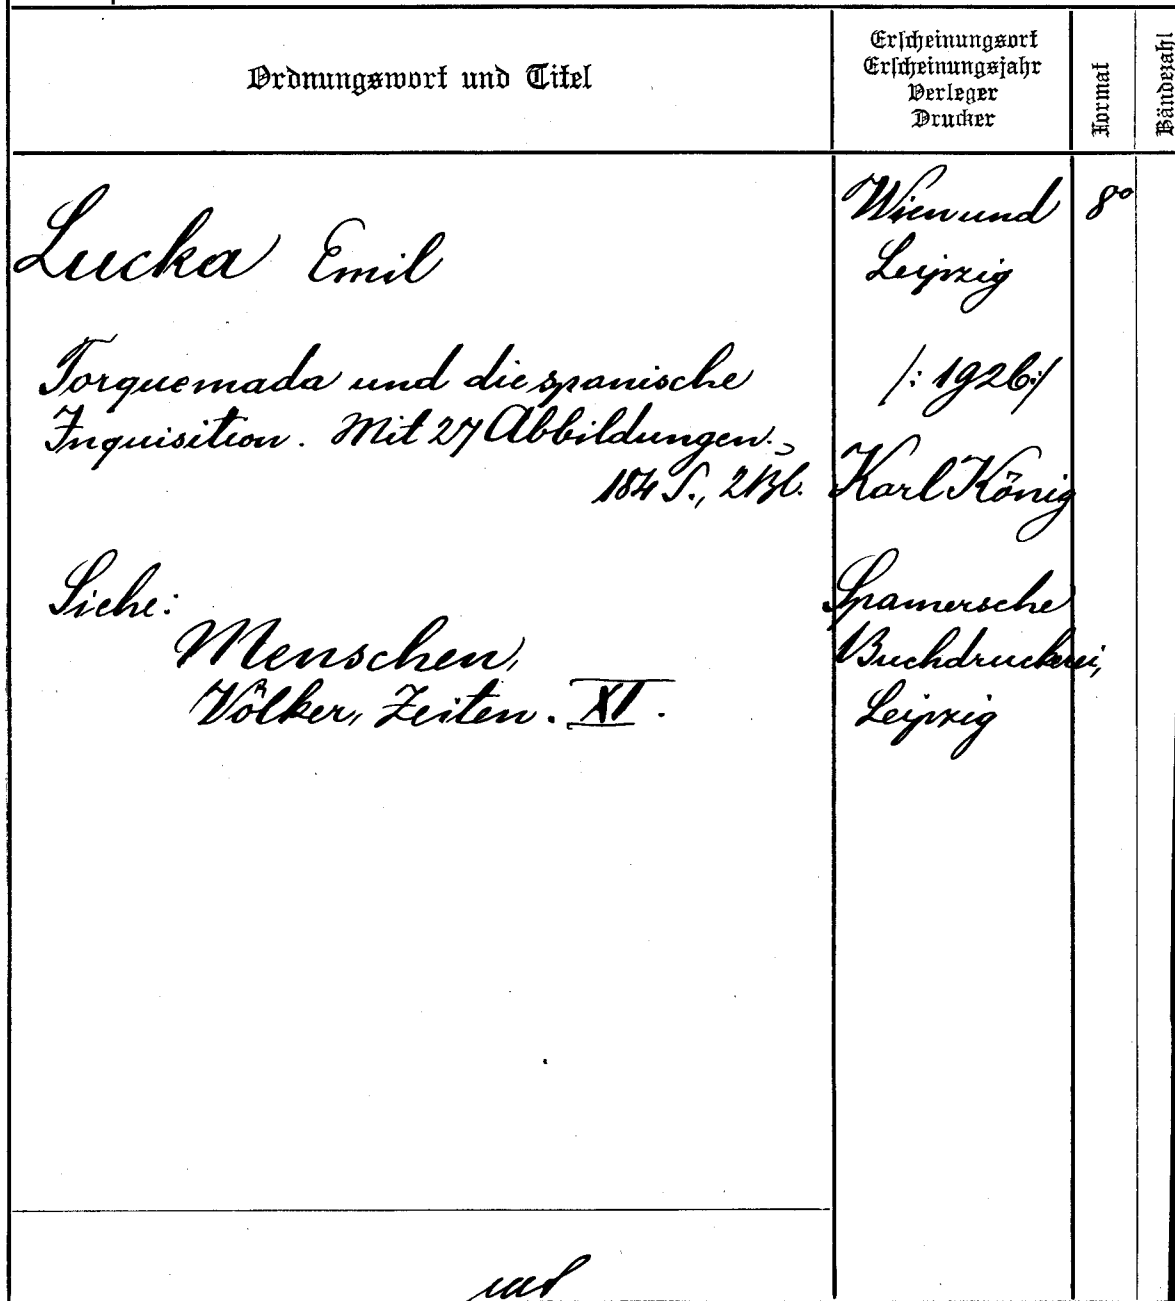 Ordnungswort und Titel
Erscheinungsort
Erscheinungsjahr
Verleger
Drucker
Format
Bändezahl
Lucka Emil
Torquemada und die spanische
Inquisition. Mit 27 Abbildungen.
184 S., 2 Bl.
Siehe:
Menschen,
Völker, Zeiten. XI.
Wien und
Leipzig
/: 1926 :/
Karl König
Spamersche
Buchdruckerei,
Leipzig
8°